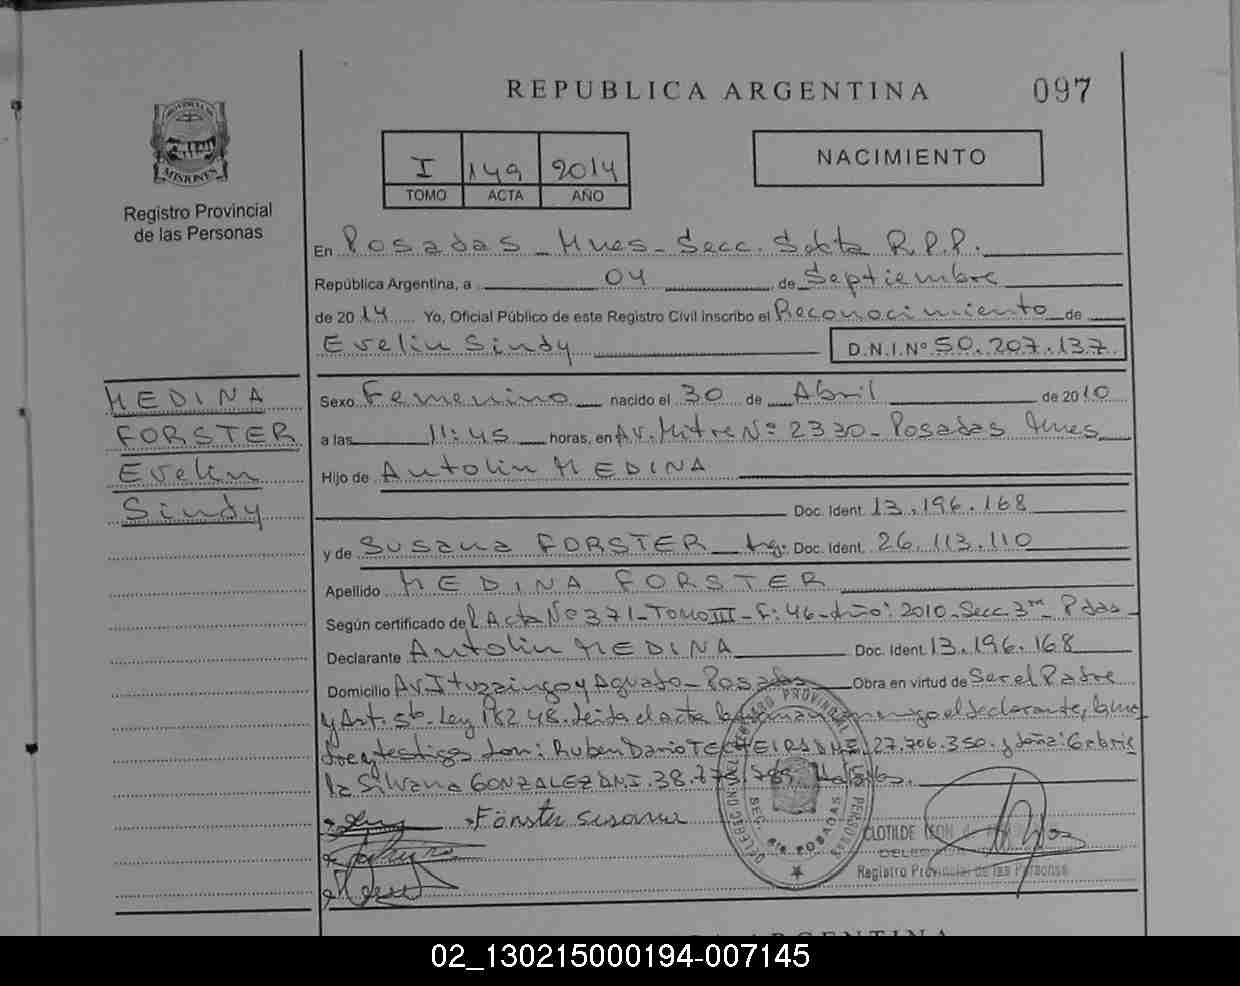 REPUBLICA ARGENTINA 097
PROVINCIA DE
MISIONES
Registro Provincial
de las Personas
I 149 2014
TOMO ACTA AÑO
NACIMIENTO
En Posadas - Mnes - Secc. Sexta R.P.P.
República Argentina, a 04 de Septiembre
de 2014 Yo, Oficial Público de este Registro Civil inscribo el Reconocimiento de
Evelin Sindy D.N.I.Nº 50.207.137
MEDINA
FORSTER
Evelin
Sindy
Sexo Femenino nacido el 30 de Abril de 2010
a las 11:45 horas, en Av. Mitre Nº 2330 - Posadas Mnes
Hijo de Antolin MEDINA
Doc. Ident. 13.196.168
y de Susana FORSTER Doc. Ident. 26.113.110
Apellido MEDINA FORSTER
Según certificado de Acta Nº 371 - Tomo III - F: 46 - Año: 2010 - Secc. 3ra Pdas
Declarante Antolin MEDINA Doc. Ident. 13.196.168
Domicilio Av. Ituzaingo y Aguado - Posadas Obra en virtud de Ser el Padre
y Art. 5to. Ley 18248. Leida el acta la firman conmigo el declarante, la ma
dre y testigos Don: Ruben Dario TECHEIRA DNI. 27.706.350 - y doña: Gabrie
la Silvana GONZALEZ DNI. 38.775.789
Förster Susana
SEC. 6ta POSADAS
CLOTILDE LEON
Registro Provincial de las Personas
ARGENTINA
02_130215000194-007145